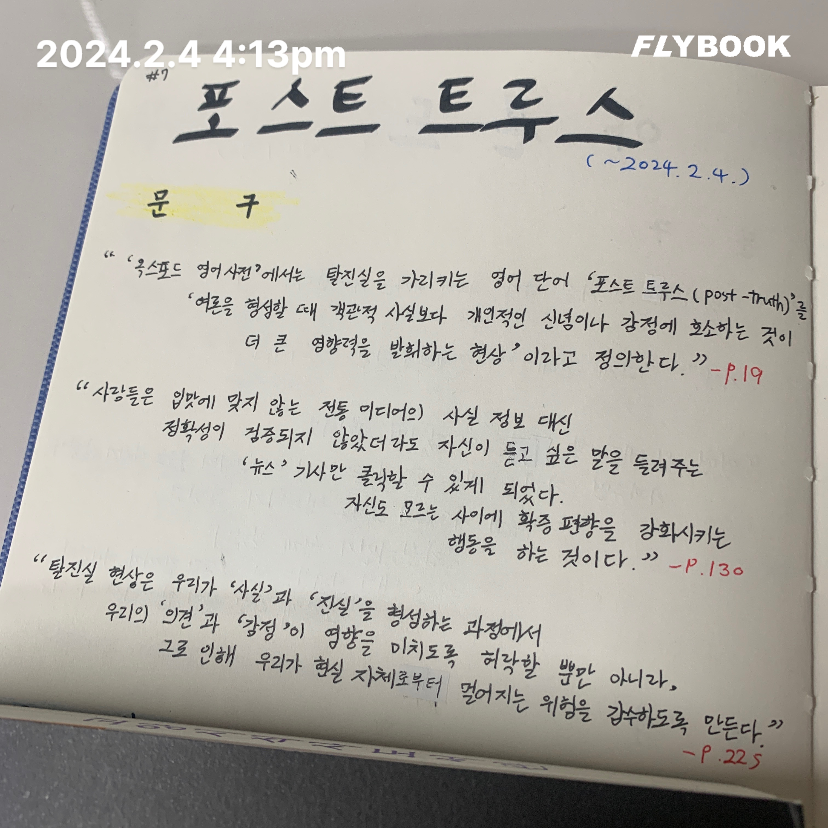 2024.2.4 4:13pm
FLYBOOK
#7
포스트 트루스
(~2024.2.4.)
문 구
“‘옥스포드 영어사전’에서는 탈진실을 가리키는 영어 단어 ‘포스트 트루스(post-truth)’를
‘여론을 형성할 때 객관적 사실보다 개인적인 신념이나 감정에 호소하는 것이
더 큰 영향력을 발휘하는 현상’이라고 정의한다.” -P.19
“사람들은 입맛에 맞지 않는 전통 미디어의 사실 정보 대신
정확성이 검증되지 않았더라도 자신이 듣고 싶은 말을 들려주는
‘뉴스’ 기사만 클릭할 수 있게 되었다.
자신도 모르는 사이에 확증 편향을 강화시키는
행동을 하는 것이다.” -P.130
“탈진실 현상은 우리가 ‘사실’과 ‘진실’을 형성하는 과정에서
우리의 ‘의견’과 ‘감정’이 영향을 미치도록 허락할 뿐만 아니라,
그로 인해 우리가 현실 자체로부터 멀어지는 위험을 감수하도록 만든다.”
-P.225